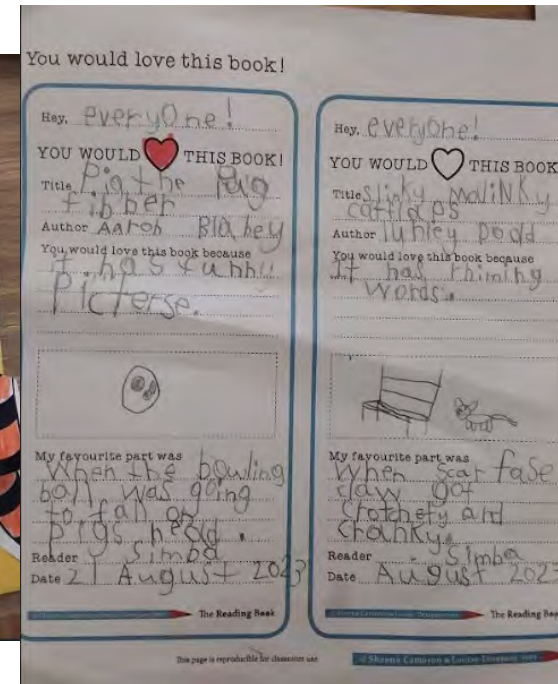 You would love this book!
Hey, everyone!
YOU WOULD THIS BOOK!
Title Pig the Pug
fibber
Author Aaron Blabey
You would love this book because
it has funny
Picterse.
My favourite part was
When the bowling
ball was going
to fall on
pigs head.
Reader Simba
Date 21 August 2023
The Reading Book
Hey, everyone!
YOU WOULD THIS BOOK
Title Slinky MaliNKy
catflaps
Author lynley Dodd
You would love this book because
It has rhiming
words.
My favourite part was
When scar fase
claw got
crotchety and
cranky.
Reader Simba
Date August 2023
The Reading Boo
This page is reproducible for classroom use.
© Sheena Cameron & Louise Dempsey